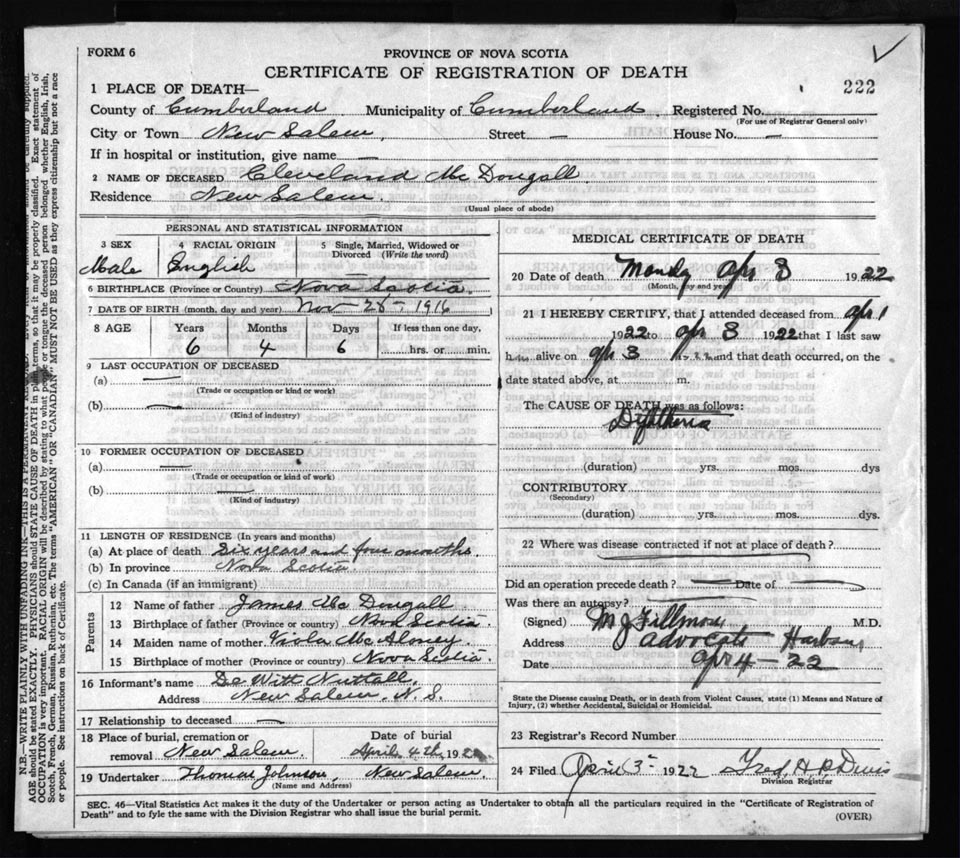 FORM 6
PROVINCE OF NOVA SCOTIA
CERTIFICATE OF REGISTRATION OF DEATH
222
1 PLACE OF DEATH—
County of Cumberland Municipality of Cumberland Registered No.
(For use of Registrar General only)
City or Town New Salem, Street — House No. —
If in hospital or institution, give name —
2 NAME OF DECEASED Cleveland Mc Dougall
Residence New Salem.
(Usual place of abode)
PERSONAL AND STATISTICAL INFORMATION
3 SEX 4 RACIAL ORIGIN 5 Single, Married, Widowed or Divorced (Write the word)
Male English
6 BIRTHPLACE (Province or Country) Nova Scotia
7 DATE OF BIRTH (month, day and year) Nov - 28 - 1916
8 AGE Years Months Days If less than one day,
6 4 6 hrs. or min.
9 LAST OCCUPATION OF DECEASED
(a) —
(Trade or occupation or kind or work)
(b) —
(Kind of industry)
10 FORMER OCCUPATION OF DECEASED
(a) —
(Trade or occupation or kind or work)
(b) —
(Kind of industry)
11 LENGTH OF RESIDENCE (In years and months)
(a) At place of death Six years and four months
(b) In province Nova Scotia
(c) In Canada (if an immigrant)
Parents
12 Name of father James Mc Dougall
13 Birthplace of father (Province or country) Nova Scotia
14 Maiden name of mother Viola Mc Aloney
15 Birthplace of mother (Province or country) Nova Scotia
16 Informant's name De Witt Nuttall
Address New Salem, N. S.
17 Relationship to deceased —
18 Place of burial, cremation or removal New Salem. Date of burial April 4th, 192
19 Undertaker Thomas Johnson, New Salem.
(Name and Address)
MEDICAL CERTIFICATE OF DEATH
20 Date of death Mondy Apr 3 1922
(Month, day and year)
21 I HEREBY CERTIFY, that I attended deceased from Apr 1
1922 to Apr 3 1922 that I last saw
h alive on Apr 3 and that death occurred, on the
date stated above, at m.
The CAUSE OF DEATH was as follows:
Diphtheria
(duration) yrs. mos. dys
CONTRIBUTORY
(Secondary)
(duration) yrs. mos. dys.
22 Where was disease contracted if not at place of death?
Did an operation precede death? — Date of —
Was there an autopsy?
(Signed) M J Fillmore M.D.
Address Advocate Harbour
Date Apr 4 - 22
State the Disease causing Death, or in death from Violent Causes, state (1) Means and Nature of
Injury, (2) whether Accidental, Suicidal or Homicidal.
23 Registrar's Record Number
24 Filed April 3 1922 Fred. H. P. Davis
Division Registrar
SEC. 46—Vital Statistics Act makes it the duty of the Undertaker or person acting as Undertaker to obtain all the particulars required in the "Certificate of Registration of
Death" and to fyle the same with the Division Registrar who shall issue the burial permit. (OVER)
N.B.—WRITE PLAINLY WITH UNFADING INK—THIS IS A PERMANENT
AGE should be stated EXACTLY. PHYSICIANS should STATE CAUSE OF DEATH in plain terms, so that it may be properly classified. Exact statement of
OCCUPATION is very important. RACIAL ORIGIN will be described by stating to what people or tongue the deceased person belonged whether English, Irish,
Scotch, French, German, Russian, Ruthenian, etc. The terms "AMERICAN" OR "CANADIAN" MUST NOT BE USED as they express citizenship but not a race
or people. See instructions on back of Certificate.